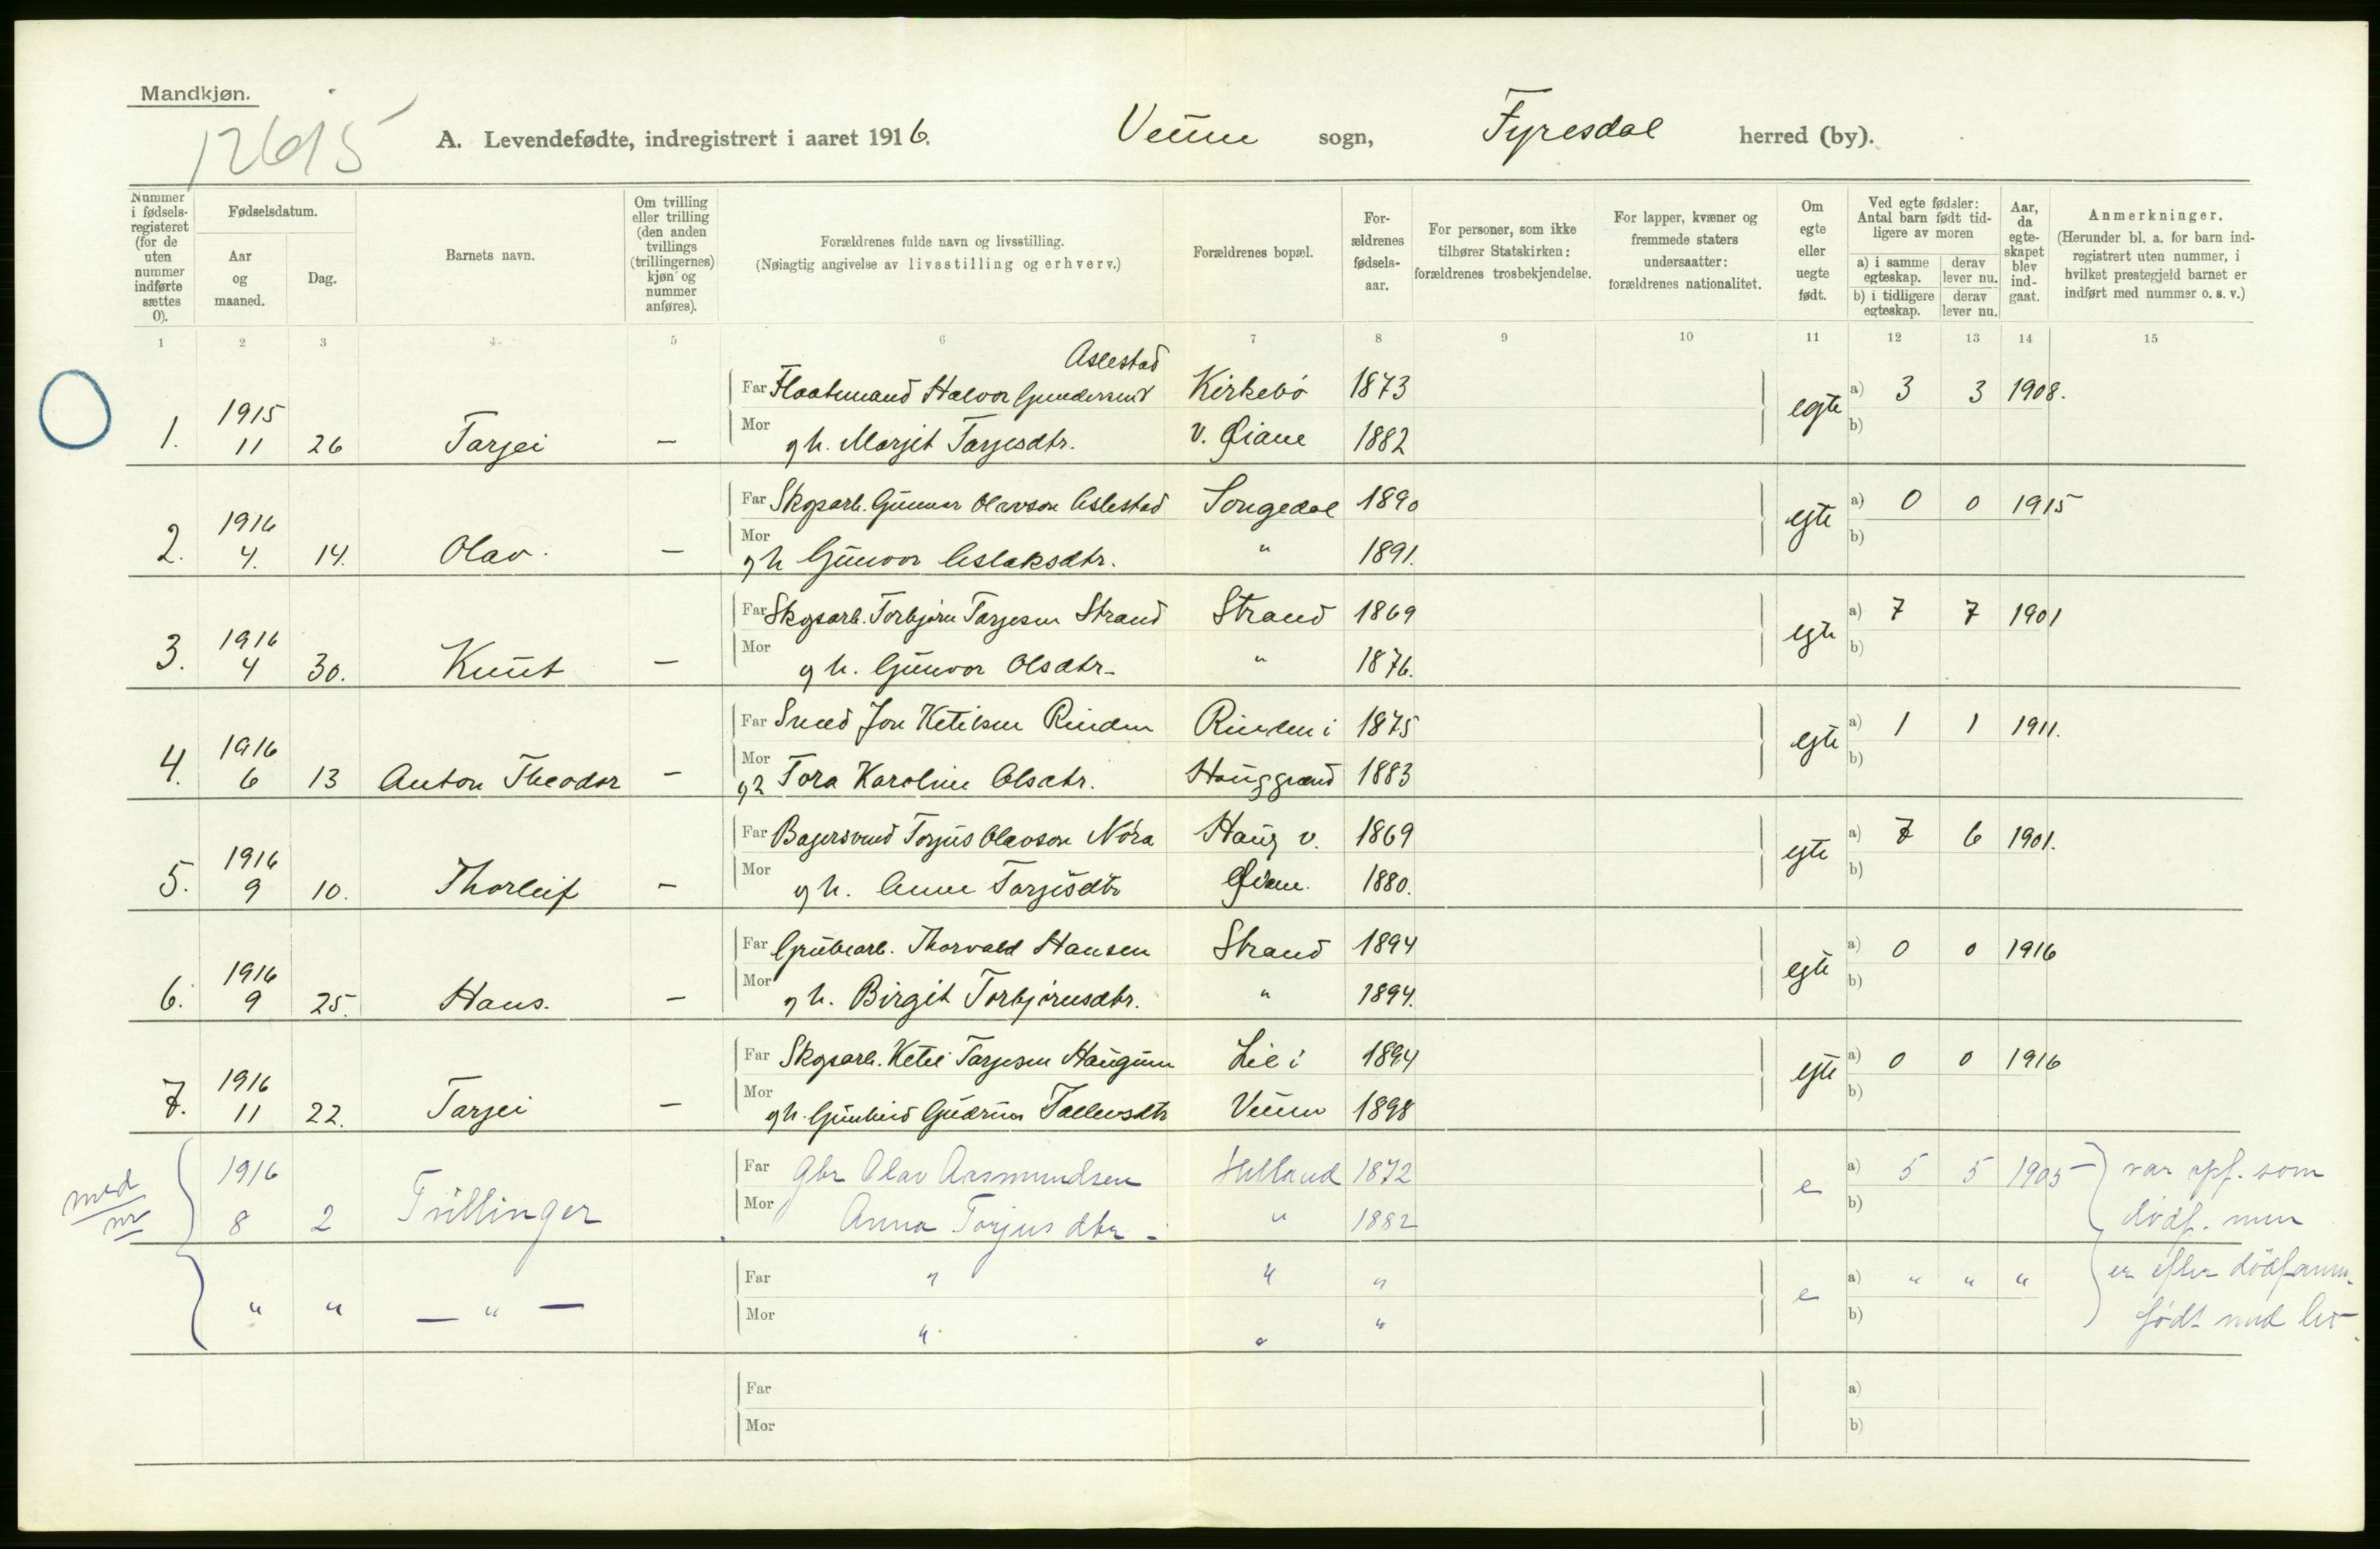 Mandkjøn.
12615
A. Levendefødte, indregistrert i aaret 1916. Veum sogn, Fyresdal herred (by).
Nummer i fødsels-registeret (for de uten nummer indførte sættes 0).
Fødselsdatum.
Aar og maaned.
Dag.
Barnets navn.
Om tvilling eller trilling (den anden tvillings (trillingernes) kjøn og nummer anføres).
Forældrenes fulde navn og livsstilling.
(Nøiagtig angivelse av livsstilling og erhverv.)
Forældrenes bopæl.
For-ældrenes fødsels-aar.
For personer, som ikke tilhører Statskirken: forældrenes trosbekjendelse.
For lapper, kvæner og fremmede staters undersaatter: forældrenes nationalitet.
Om egte eller uegte født.
Ved egte fødsler: Antal barn født tid-ligere av moren
a) i samme egteskap. derav lever nu.
b) i tidligere egteskap. derav lever nu.
Aar, da egte-skapet blev ind-gaat.
Anmerkninger.
(Herunder bl. a. for barn ind-registrert uten nummer, i hvilket prestegjeld barnet er indført med nummer o. s. v.)
1 2 3 4 5 6 7 8 9 10 11 12 13 14 15
Aslestad
1915 Far Flaatmand Halvor Gundersen Kirkebø 1873 egte a) 3 3 1908.
1. 11 26 Tarjei — Mor g h. Margit Tarjesdtr. v. Øiane 1882 b)
1916 Far Skogsarb. Gunnar Olavson Aslestad Songedal 1890 egte a) 0 0 1915
2. 4. 14. Olav. — Mor g h Gunvor Aslaksdtr. " 1891. b)
1916 Far Skogsarb. Torbjørn Tarjesen Strand Strand 1869 egte a) 7 7 1901
3. 4 30. Knut — Mor g h. Gunvor Olsdtr. " 1876. b)
1916 Far Smed Jon Ketilsen Rinden Rinden i 1875 egte a) 1 1 1911.
4. 6 13 Anton Theodor — Mor g h Tora Karoline Olsdtr. Hauggrend 1883 b)
1916 Far Bagersvend Torjus Olavson Nóra Haug v. 1869 egte a) 7 6 1901.
5. 9 10. Thorleif — Mor g h. Anne Tarjisdtr Øiane. 1880. b)
1916 Far Grubearb. Thorvald Hansen Strand 1894 egte a) 0 0 1916
6. 9 25. Hans. — Mor g h. Birgit Torbjørnsdtr. " 1894. b)
1916 Far Skogsarb. Ketil Tarjesen Haugum Lie i 1894 egte a) 0 0 1916
7. 11 22. Tarjei — Mor g h. Gunhild Gudrun Tallevsdtr Veum 1898 b)
med nr
1916 Far Gbr Olav Aasmundsen Helland 1872 e a) 5 5 1905 var opf. som
8 2 Trillinger Mor Anna Torjusdtr. " 1882 b) dödf. men
Far " " " e a) " " " er efter dödfanm.
" " — " — Mor " " " b) født med liv.
Far a)
Mor b)